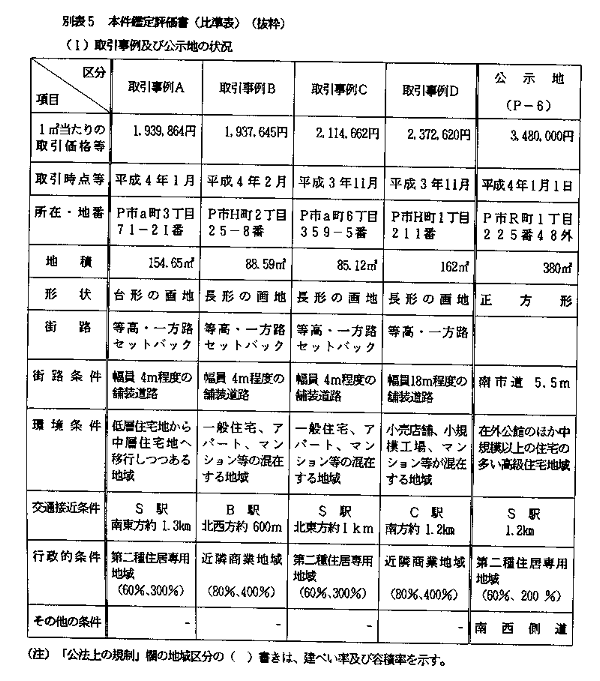 別表5　本件鑑定評価書（比準表）（抜粋）
（1）取引事例及び公示地の状況
区分
項目
取引事例A　取引事例B　取引事例C　取引事例D　公示地（P－6）
1㎡当たりの取引価格等　1,939,864円　1,937,645円　2,114,662円　2,372,620円　3,480,000円
取引時点等　平成4年1月　平成4年2月　平成3年11月　平成3年11月　平成4年1月1日
所在・地番　P市a町3丁目　P市H町2丁目　P市a町6丁目　P市H町1丁目　P市R町1丁目
71－21番　25－8番　359－5番　211番　225番48外
地積　154.65㎡　88.59㎡　85.12㎡　162㎡　380㎡
形状　台形の画地　長形の画地　長形の画地　長形の画地　正方形
街路　等高・一方路　等高・一方路　等高・一方路　等高・一方路
セットバック　セットバック　セットバック
街路条件　幅員4m程度の　幅員4m程度の　幅員4m程度の　幅員18m程度の　南市道5.5m
舗装道路　舗装道路　舗装道路　舗装道路
環境条件　低層住宅地から　一般住宅、ア　一般住宅、ア　小売店舗、小規　在外公館のほか中
中層住宅地へ　パート、マン　パート、マン　模工場、マン　規模以上の住宅の
移行しつつある　ション等の混在　ション等の混在　ション等が混在　多い高級住宅地域
地域　する地域　する地域　する地域
交通接近条件　S駅　B駅　S駅　C駅　S駅
南東方約1.3km　北西方約600m　北東方約1km　南方約1.2km　1.2km
行政的条件　第二種住居専用　近隣商業地域　第二種住居専用　近隣商業地域　第二種住居専用
地域　地域　地域
（60%、300%）　（80%、400%）　（60%、300%）　（80%、400%）　（60%、200%）
その他の条件　－　－　－　－　南西側道
（注）「公法上の規制」欄の地域区分の（　）書きは、建ぺい率及び容積率を示す。